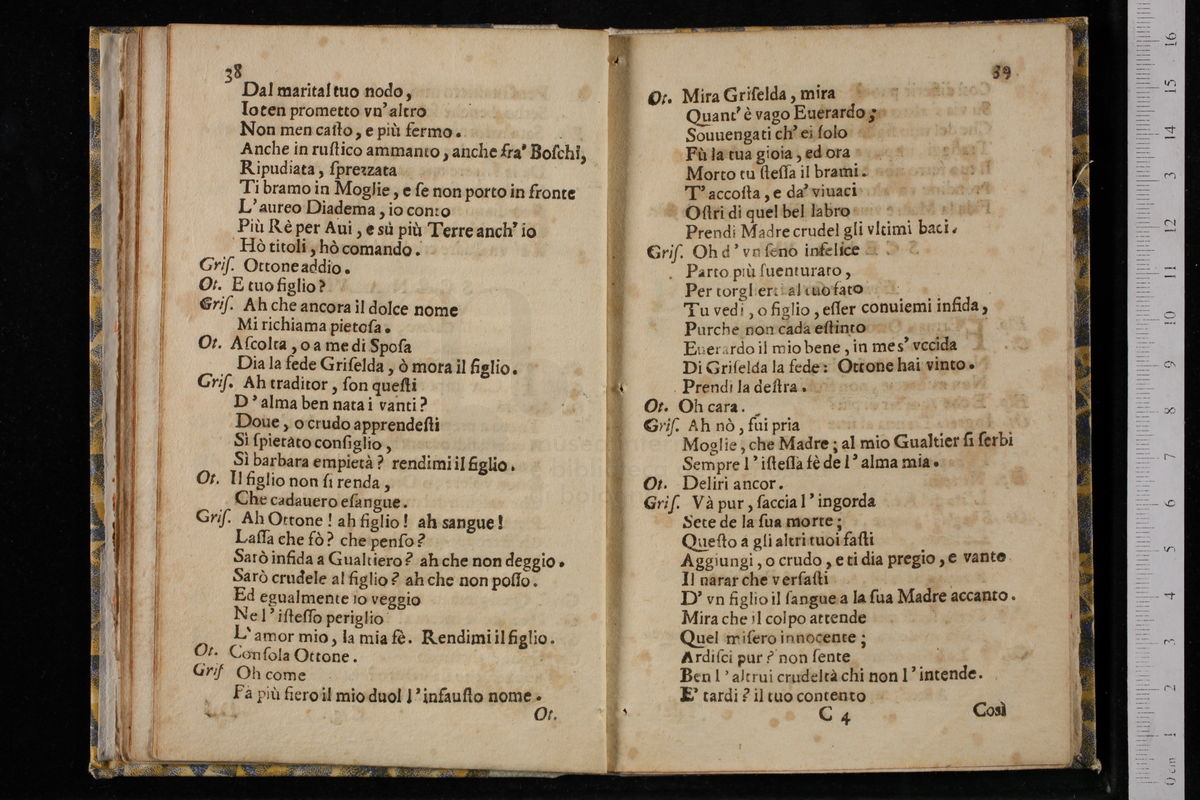 38
Dal marital tuo nodo,
Io ten prometto vn' altro
Non men caſto, e più fermo.
Anche in ruſtico ammanto, anche fra' Boſchi,
Ripudiata, ſprezzata
Ti bramo in Moglie, e ſe non porto in fronte
L' aureo Diadema, io conto
Più Rè per Aui, e sù più Terre anch' io
Hò titoli, hò comando.
Griſ. Ottone addio.
Ot. E tuo figlio?
Griſ. Ah che ancora il dolce nome
Mi richiama pietoſa.
Ot. Aſcolta, o a me di Spoſa
Dia la fede Griſelda, ò mora il figlio.
Griſ. Ah traditor, ſon queſti
D' alma ben nata i vanti?
Doue, o crudo apprendeſti
Sì ſpietato conſiglio,
Sì barbara empietà? rendimi il figlio.
Ot. Il figlio non ſi renda,
Che cadauero eſangue.
Griſ. Ah Ottone! ah figlio! ah sangue!
Laſſa che fò? che penſo?
Sarò infida a Gualtiero? ah che non deggio.
Sarò crudele al figlio? ah che non poſſo.
Ed egualmente io veggio
Ne l' iſteſſo periglio
L' amor mio, la mia fè. Rendimi il figlio.
Ot. Conſola Ottone.
Griſ Oh come
Fa più fiero il mio duol l' infauſto nome.
Ot.
39
Ot. Mira Griſelda, mira
Quant' è vago Euerardo;
Souuengati ch' ei ſolo
Fù la tua gioia, ed ora
Morto tu ſteſſa il brami.
T' accoſta, e da' viuaci
Oſtri di quel bel labro
Prendi Madre crudel gli vltimi baci.
Griſ. Oh d' vn ſeno infelice
Parto più ſuenturato,
Per torgl erti al tuo fato
Tu vedi, o figlio, eſſer conuiemi infida,
Purche non cada eſtinto
Euerardo il mio bene, in mes' vccida
Di Griſelda la fede: Ottone hai vinto.
Prendi la deſtra.
Ot. Oh cara.
Griſ. Ah nò, fui pria
Moglie, che Madre; al mio Gualtier ſi ſerbi
Sempre l' iſteſſa fè de l' alma mia.
Ot. Deliri ancor.
Griſ. Và pur, ſaccia l' ingorda
Sete de la ſua morte;
Queſto a gli altri tuoi faſti
Aggiungi, o crudo, e ti dia pregio, e vanto
Il narar che verſaſti
D' vn figlio il ſangue a la ſua Madre accanto.
Mira che il colpo attende
Quel miſero innocente;
Ardiſci pur? non ſente
Ben l' altrui crudeltà chi non l' intende.
E' tardi? il tuo contento
C 4
Così